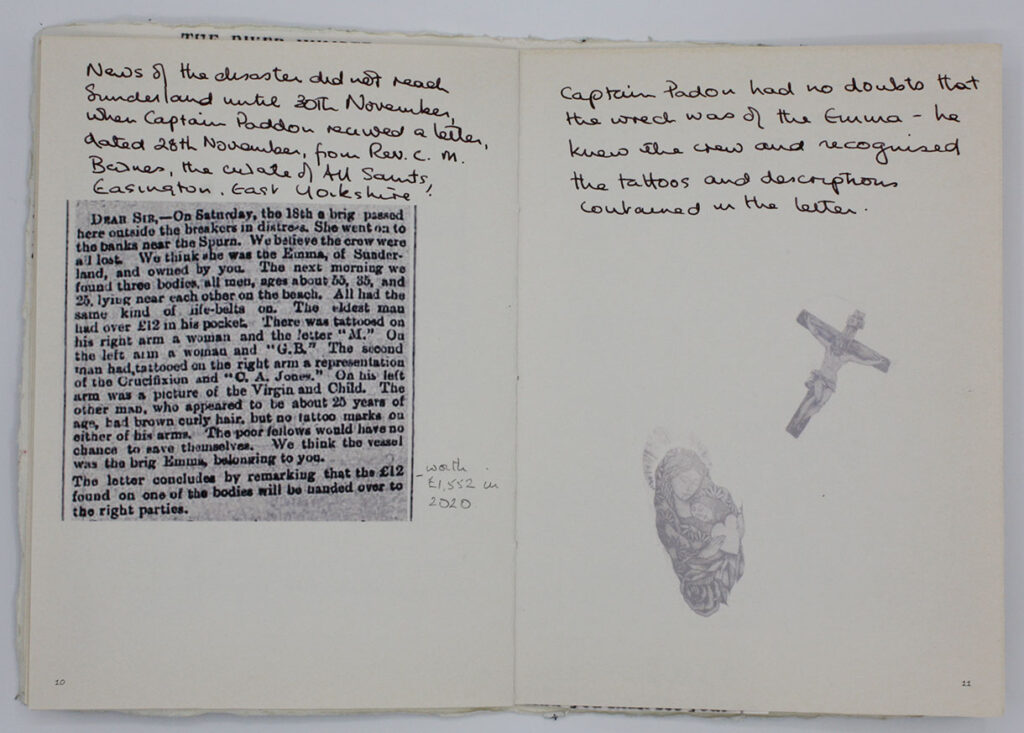 News of the disaster did not reach
Sunderland until 30th November,
when Captain Paddon received a letter,
dated 28th November, from Rev. C. M.
Barnes, the curate of All Saints,
Easington, East Yorkshire!
DEAR SIR,—On Saturday, the 18th a brig passed
here outside the breakers in distress. She went on to
the banks near the Spurn. We believe the crew were
all lost. We think she was the Emma, of Sunder-
land, and owned by you. The next morning we
found three bodies, all men, ages about 55, 35, and
25, lying near each other on the beach. All had the
same kind of life-belts on. The eldest man
had over £12 in his pocket. There was tattooed on
his right arm a woman and the letter "M." On
the left arm a woman and "G.B." The second
man had, tattooed on the right arm a representation
of the Crucifixion and "C. A. Jones." On his left
arm was a picture of the Virgin and Child. The
other man, who appeared to be about 25 years of
age, had brown curly hair, but no tattoo marks on
either of his arms. The poor fellows would have no
chance to save themselves. We think the vessel
was the brig Emma, belonging to you.
The letter concludes by remarking that the £12
found on one of the bodies will be handed over to
the right parties.
- worth
£1,552 in
2020
10
Captain Padon had no doubts that
the wreck was of the Emma - he
knew the crew and recognised
the tattoos and descriptions
contained in the letter.
11